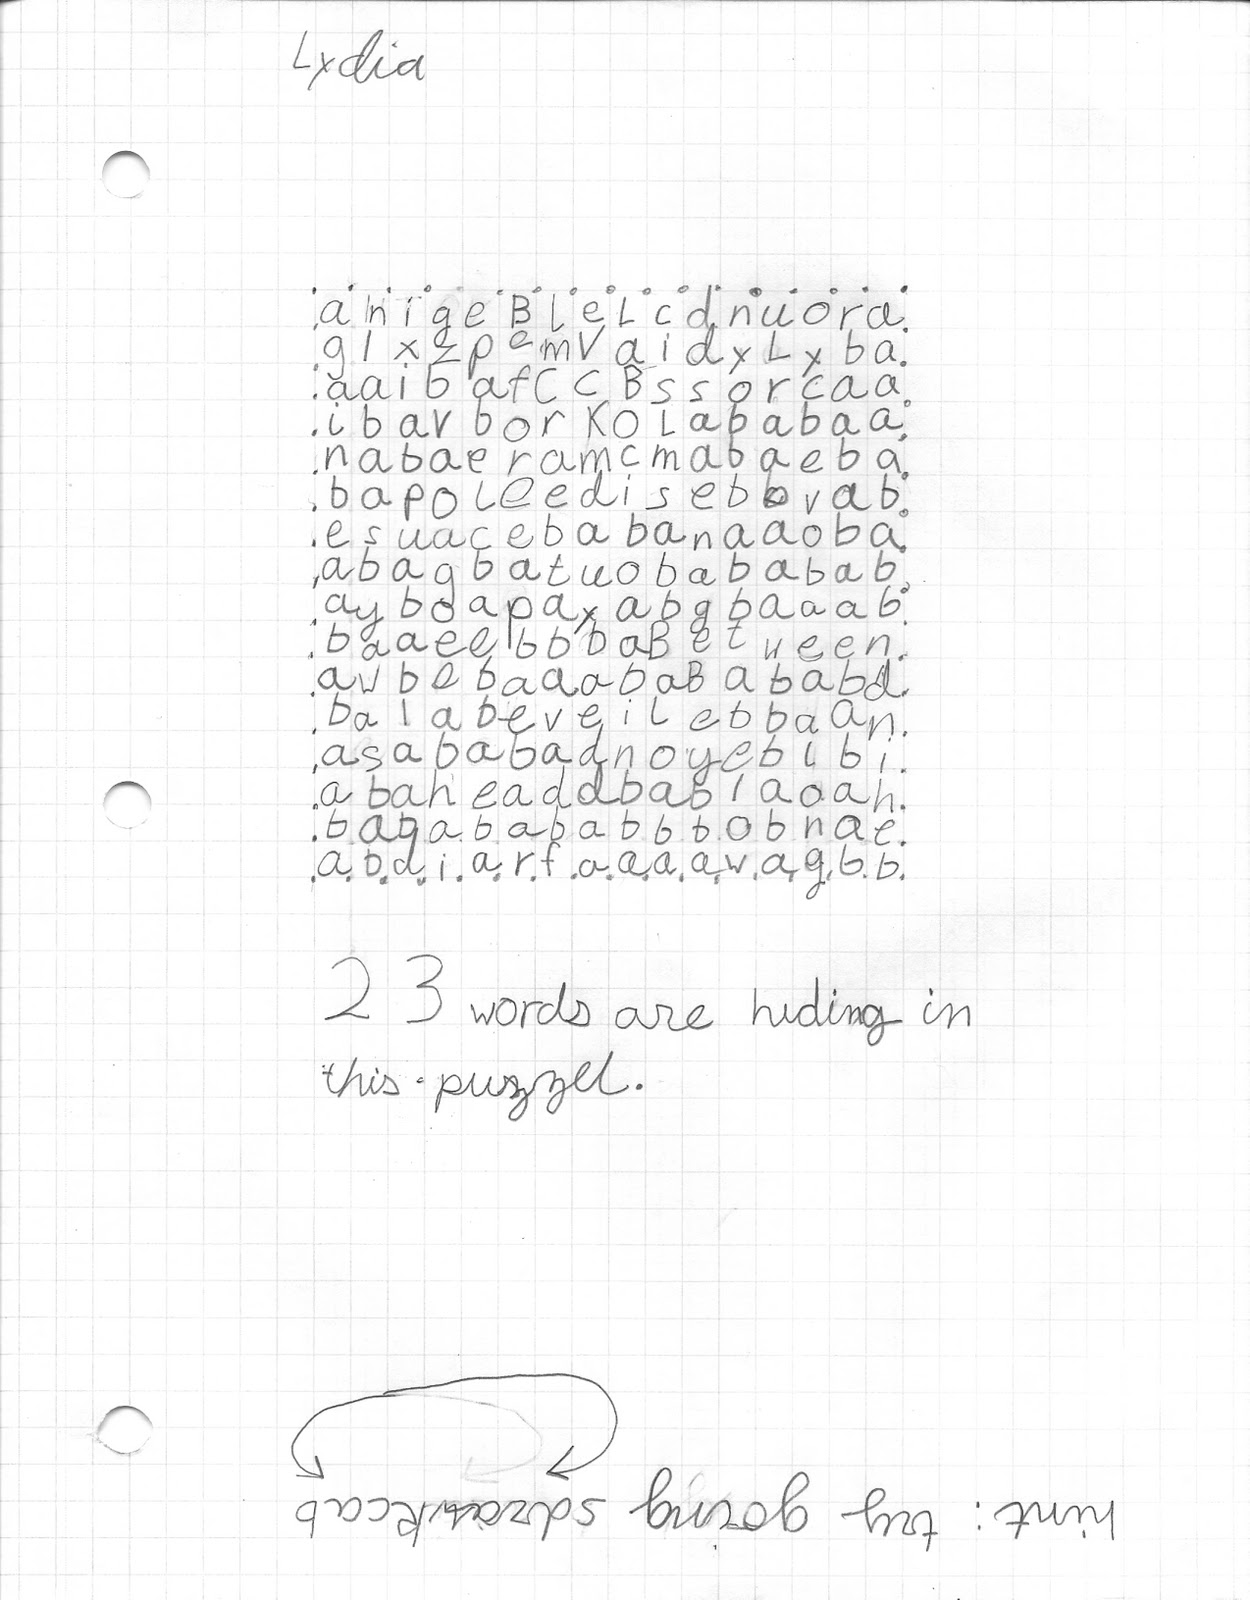 Lydia
a n i g e B l e L c d n u o r a
g l x z p e m V a i d y L y b a
a a i b a f C C B s s o r c a a
i b a v b o r K O L a b a b a a
n a b a e r a m c m a b a e b a
b a p o l e e d i s e b b v a b
e s u a c e b a b a n a a o b a
a b a g b a t u o b a b a b a b
a y b o a p a x a b g b a a a b
b a a e e l b b b a B e t w e e n
a w b e b a a a b a B a b a b d
b a l a b e v e i l e b b a a n
a s a b a b a d n o y e b l b i
a b a h e a d d b a b l a o a h
b a g a b a b a b b b o b n a e
a b d i a r f a a a a w a g b b
23 words are hiding in
this puzzel.
hint: try going sdrawkcab